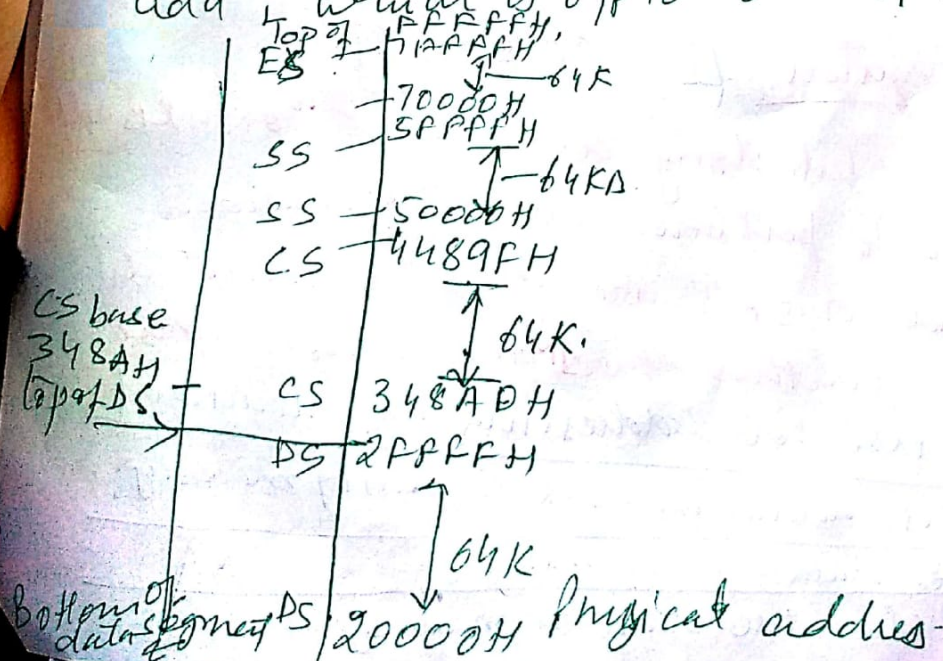 add
Top of FFFFFFH,
ES 7FFFFH
64K
70000H
5FFFFH
SS
64KB
SS 50000H
CS 4489FH
CS base
348AH
64K.
CS 348A0H
Top of DS
DS 2FFFFH
64K
Bottom of
data segment DS 20000H Physical addres-